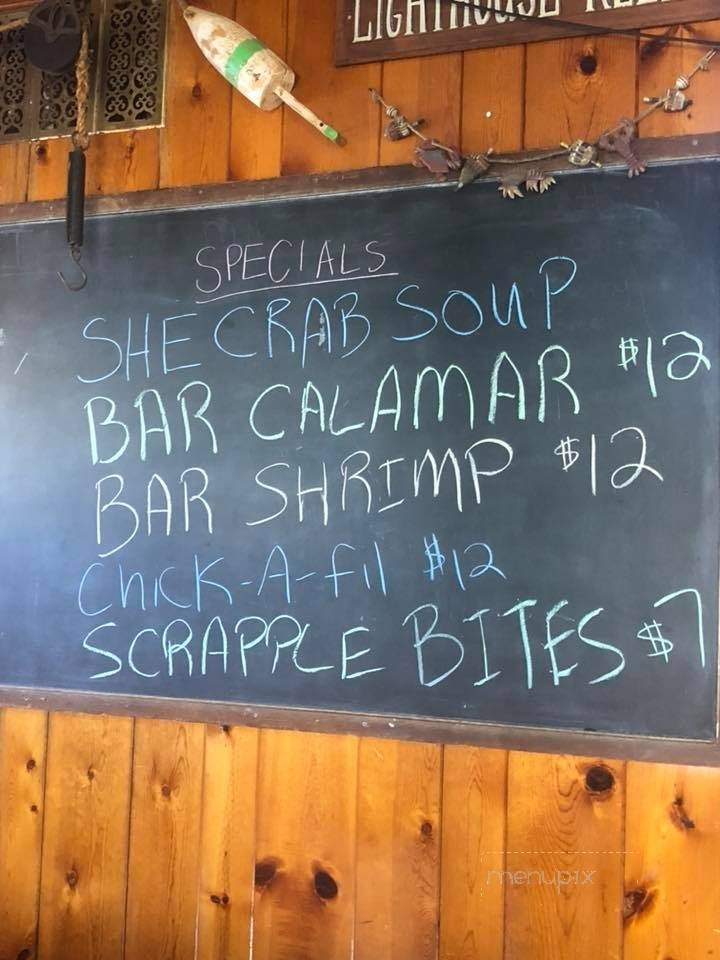 SPECIALS
SHE CRAB SOUP
BAR CALAMAR $12
BAR SHRIMP $12
Chick-A-fil $12
SCRAPPLE BITES $7
menupix